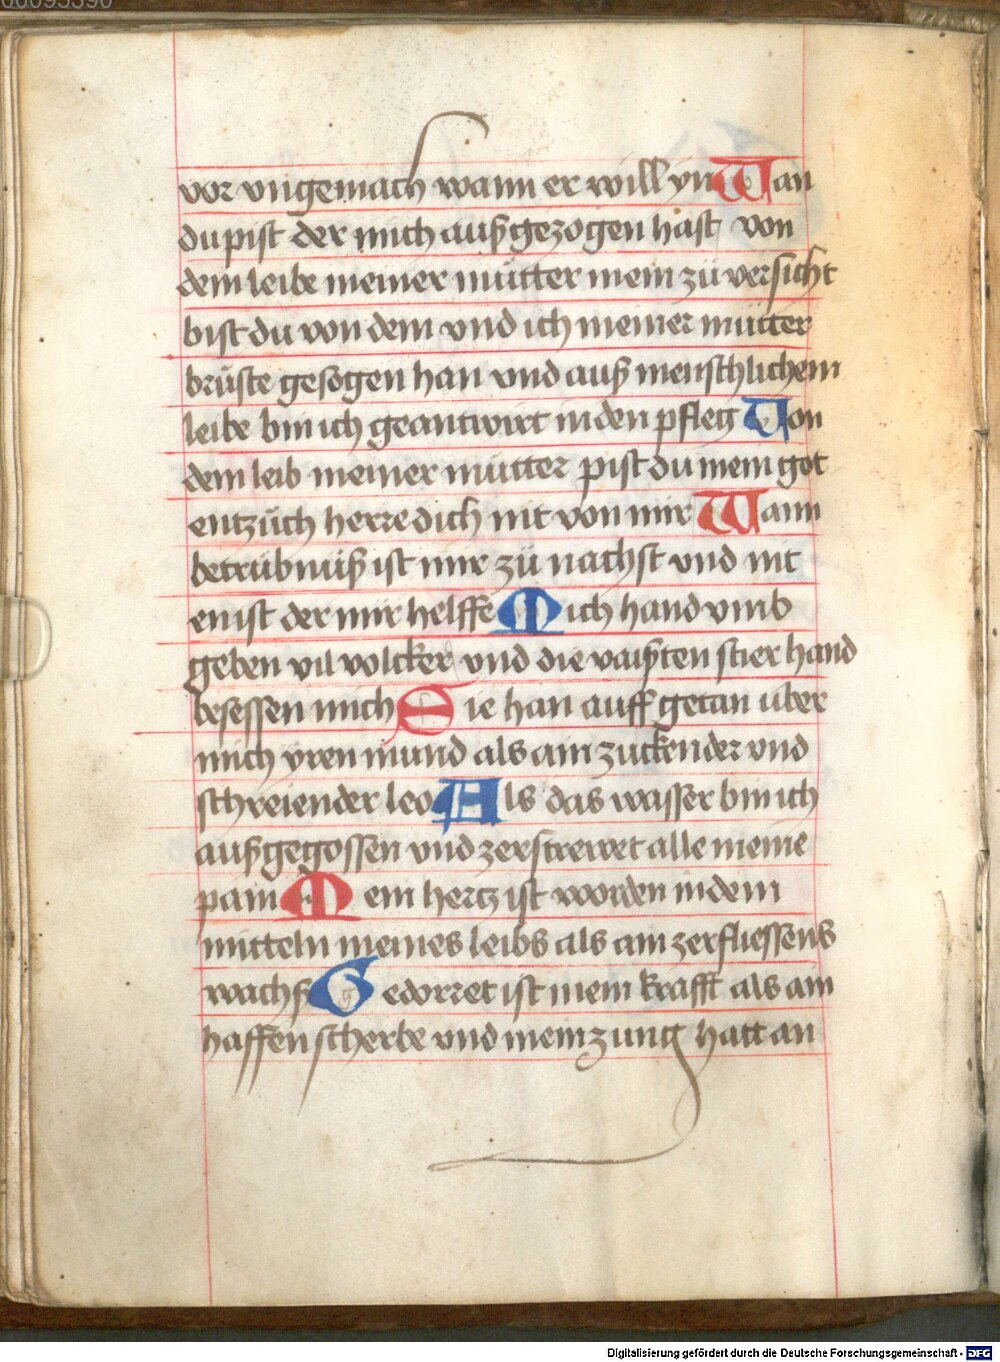 vor vngemach wann er will yn Wan
du pist der mich außgezogen hast von
dem leibe meiner mütter mein zü versicht
bist du von dem vnd ich meiner mütter
brüste gesogen han vnd auß menschlichem
leibe bin ich geantwirt in den pfleg Von
dem leib meiner mütter pist du mein got
entzüch herre dich nit von mir Wann
betrübnüß ist mir zü nachst vnd nit
en ist der mir helffe Mich hand vmb
geben vil volcker vnd die vaißten stier hand
besessen mich Sie han auff getan über
mich yren mund als ain zuckender vnd
schreiender leo Als das wasser bin ich
außgegossen vnd zerstrewet alle meine
pain Mein hertz ist worden in dem
mitteln meines leibs als ain zerfliessens
wachß Gedorret ist mein krafft als ain
haffen scherbe vnd mein zung hatt an
Digitalisierung gefördert durch die Deutsche Forschungsgemeinschaft - DFG